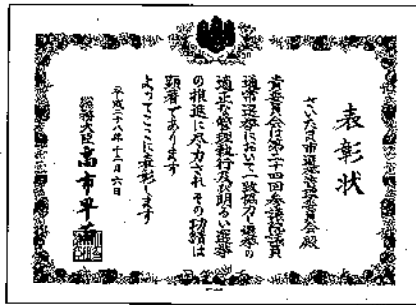 表彰状
さいたま市選挙管理委員会殿
貴委員会は第二十四回参議院議員
通常選挙において一致協力し選挙の
適正な管理執行及び明るい選挙
の推進に尽力されその功績は
顕著であります
よってここに表彰します
平成二十八年十二月六日
総務大臣 高市早苗